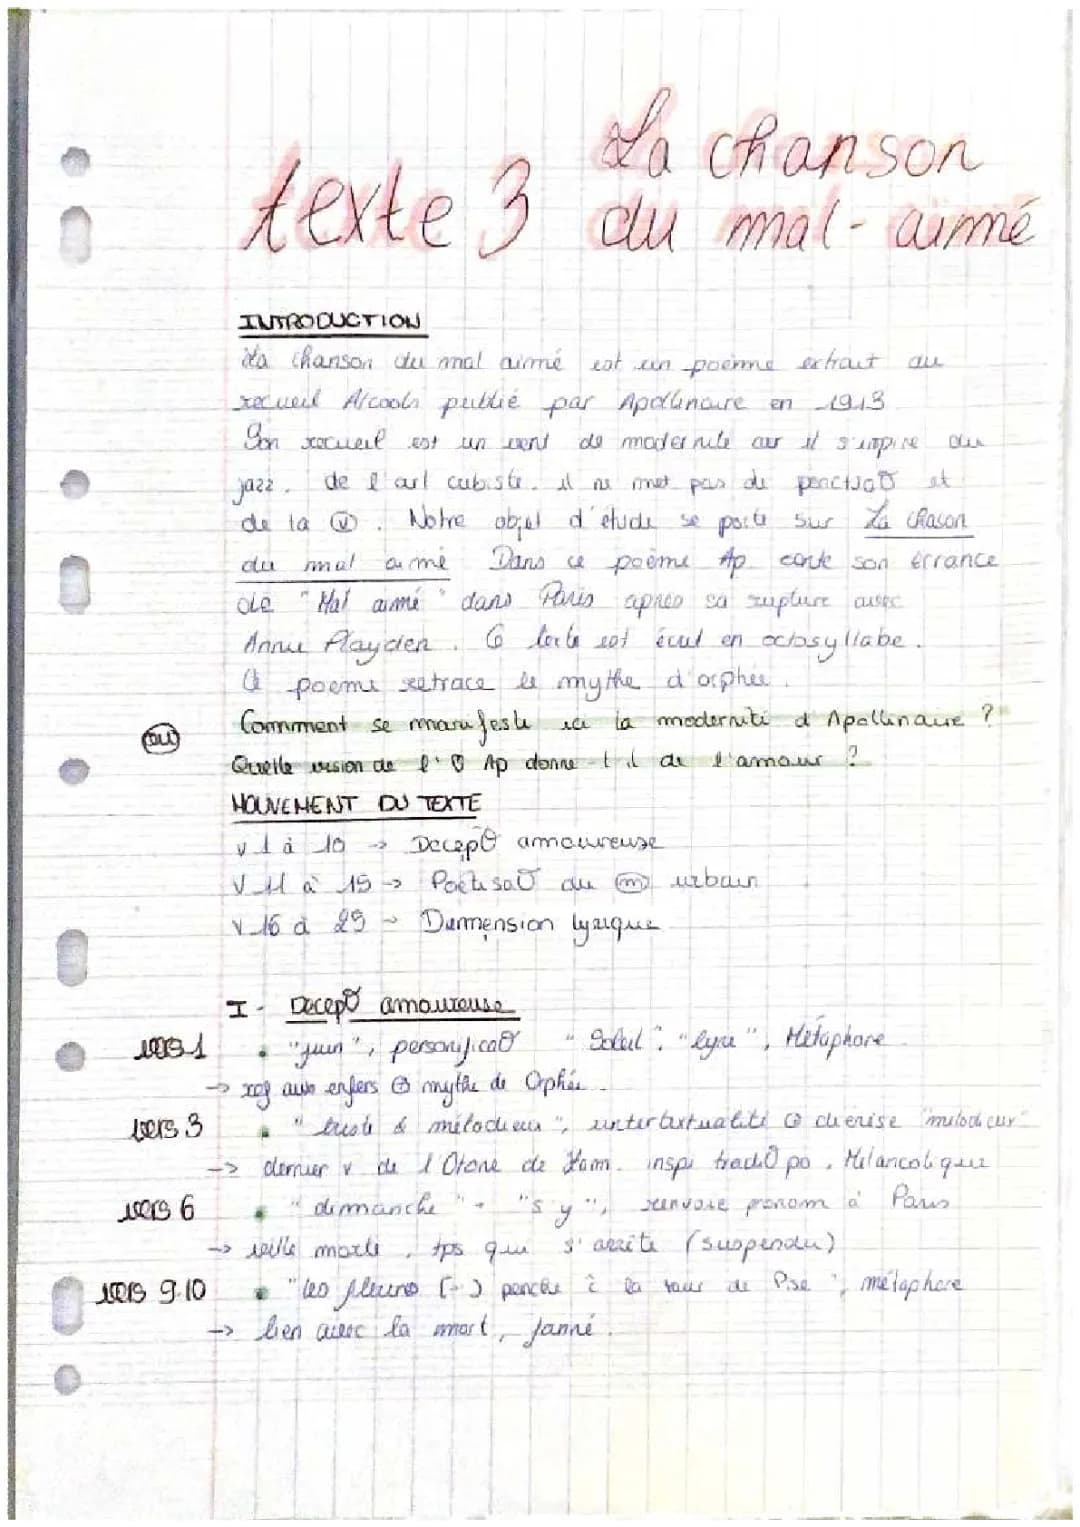 texte 3 La chanson
du mal-aimé
INTRODUCTION
La chanson du mal aimé est un poème extrait du
recueil Alcools publié par Apollinaire en 1913
Son recueil est un vent de modernité car il s'inspire du
jazz, de l'art cubiste. il ne met pas de et
de la Ⓥ. Notre objet d'étude se porte sur La chason
du mal aimé Dans ce poème Ap conte son errance
de "Mal aimé" dans Paris après sa rupture avec
Annie Playden. C texte est écrit en octosyllabe.
Ce poème retrace le mythe d'orphée.
Comment se manifeste ici la modernité d'Apollinaire ?
ou
Quelle vision de l' Ap donne-t-il de l'amour ?
MOUVEMENT DU TEXTE
v 1 à 10 -> amoureuse
V 11 à 15 -> du ⓜ urbain
v 16 à 29 - Dimension lyrique
I - amoureuse
vers 1 • "juin", "Soleil", "lyre", Métaphore
-> ref aux enfers mythe de Orphée.
vers 3 • "triste & mélodieux", intertextualité diérise "mélodieux"
-> dernier v de Ham. inspi po, Mélancolique
vers 6 • "dimanche" - "s'y", renvoie pronom à Paris
-> ville morte, tps qui s'arrête (suspendu)
vers 9.10 • "les (-) penche à la tour de Pise", métaphore
-> lien avec la mort,